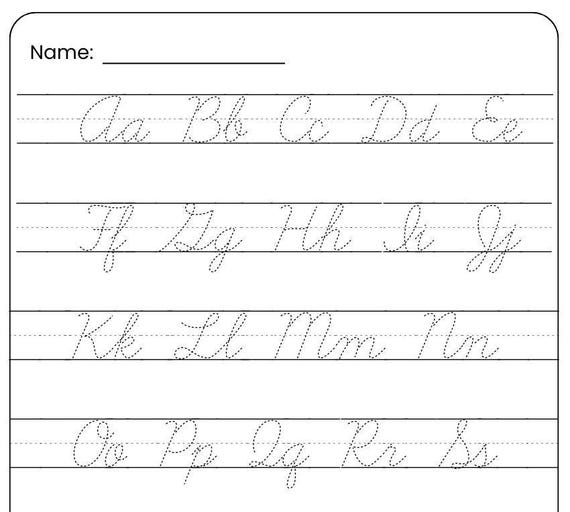 Name:
Aa Bb Cc Dd Ee
Ff Gg Hh Ii Jj
Kk Ll Mm Nn
Oo Pp Qq Rr Ss